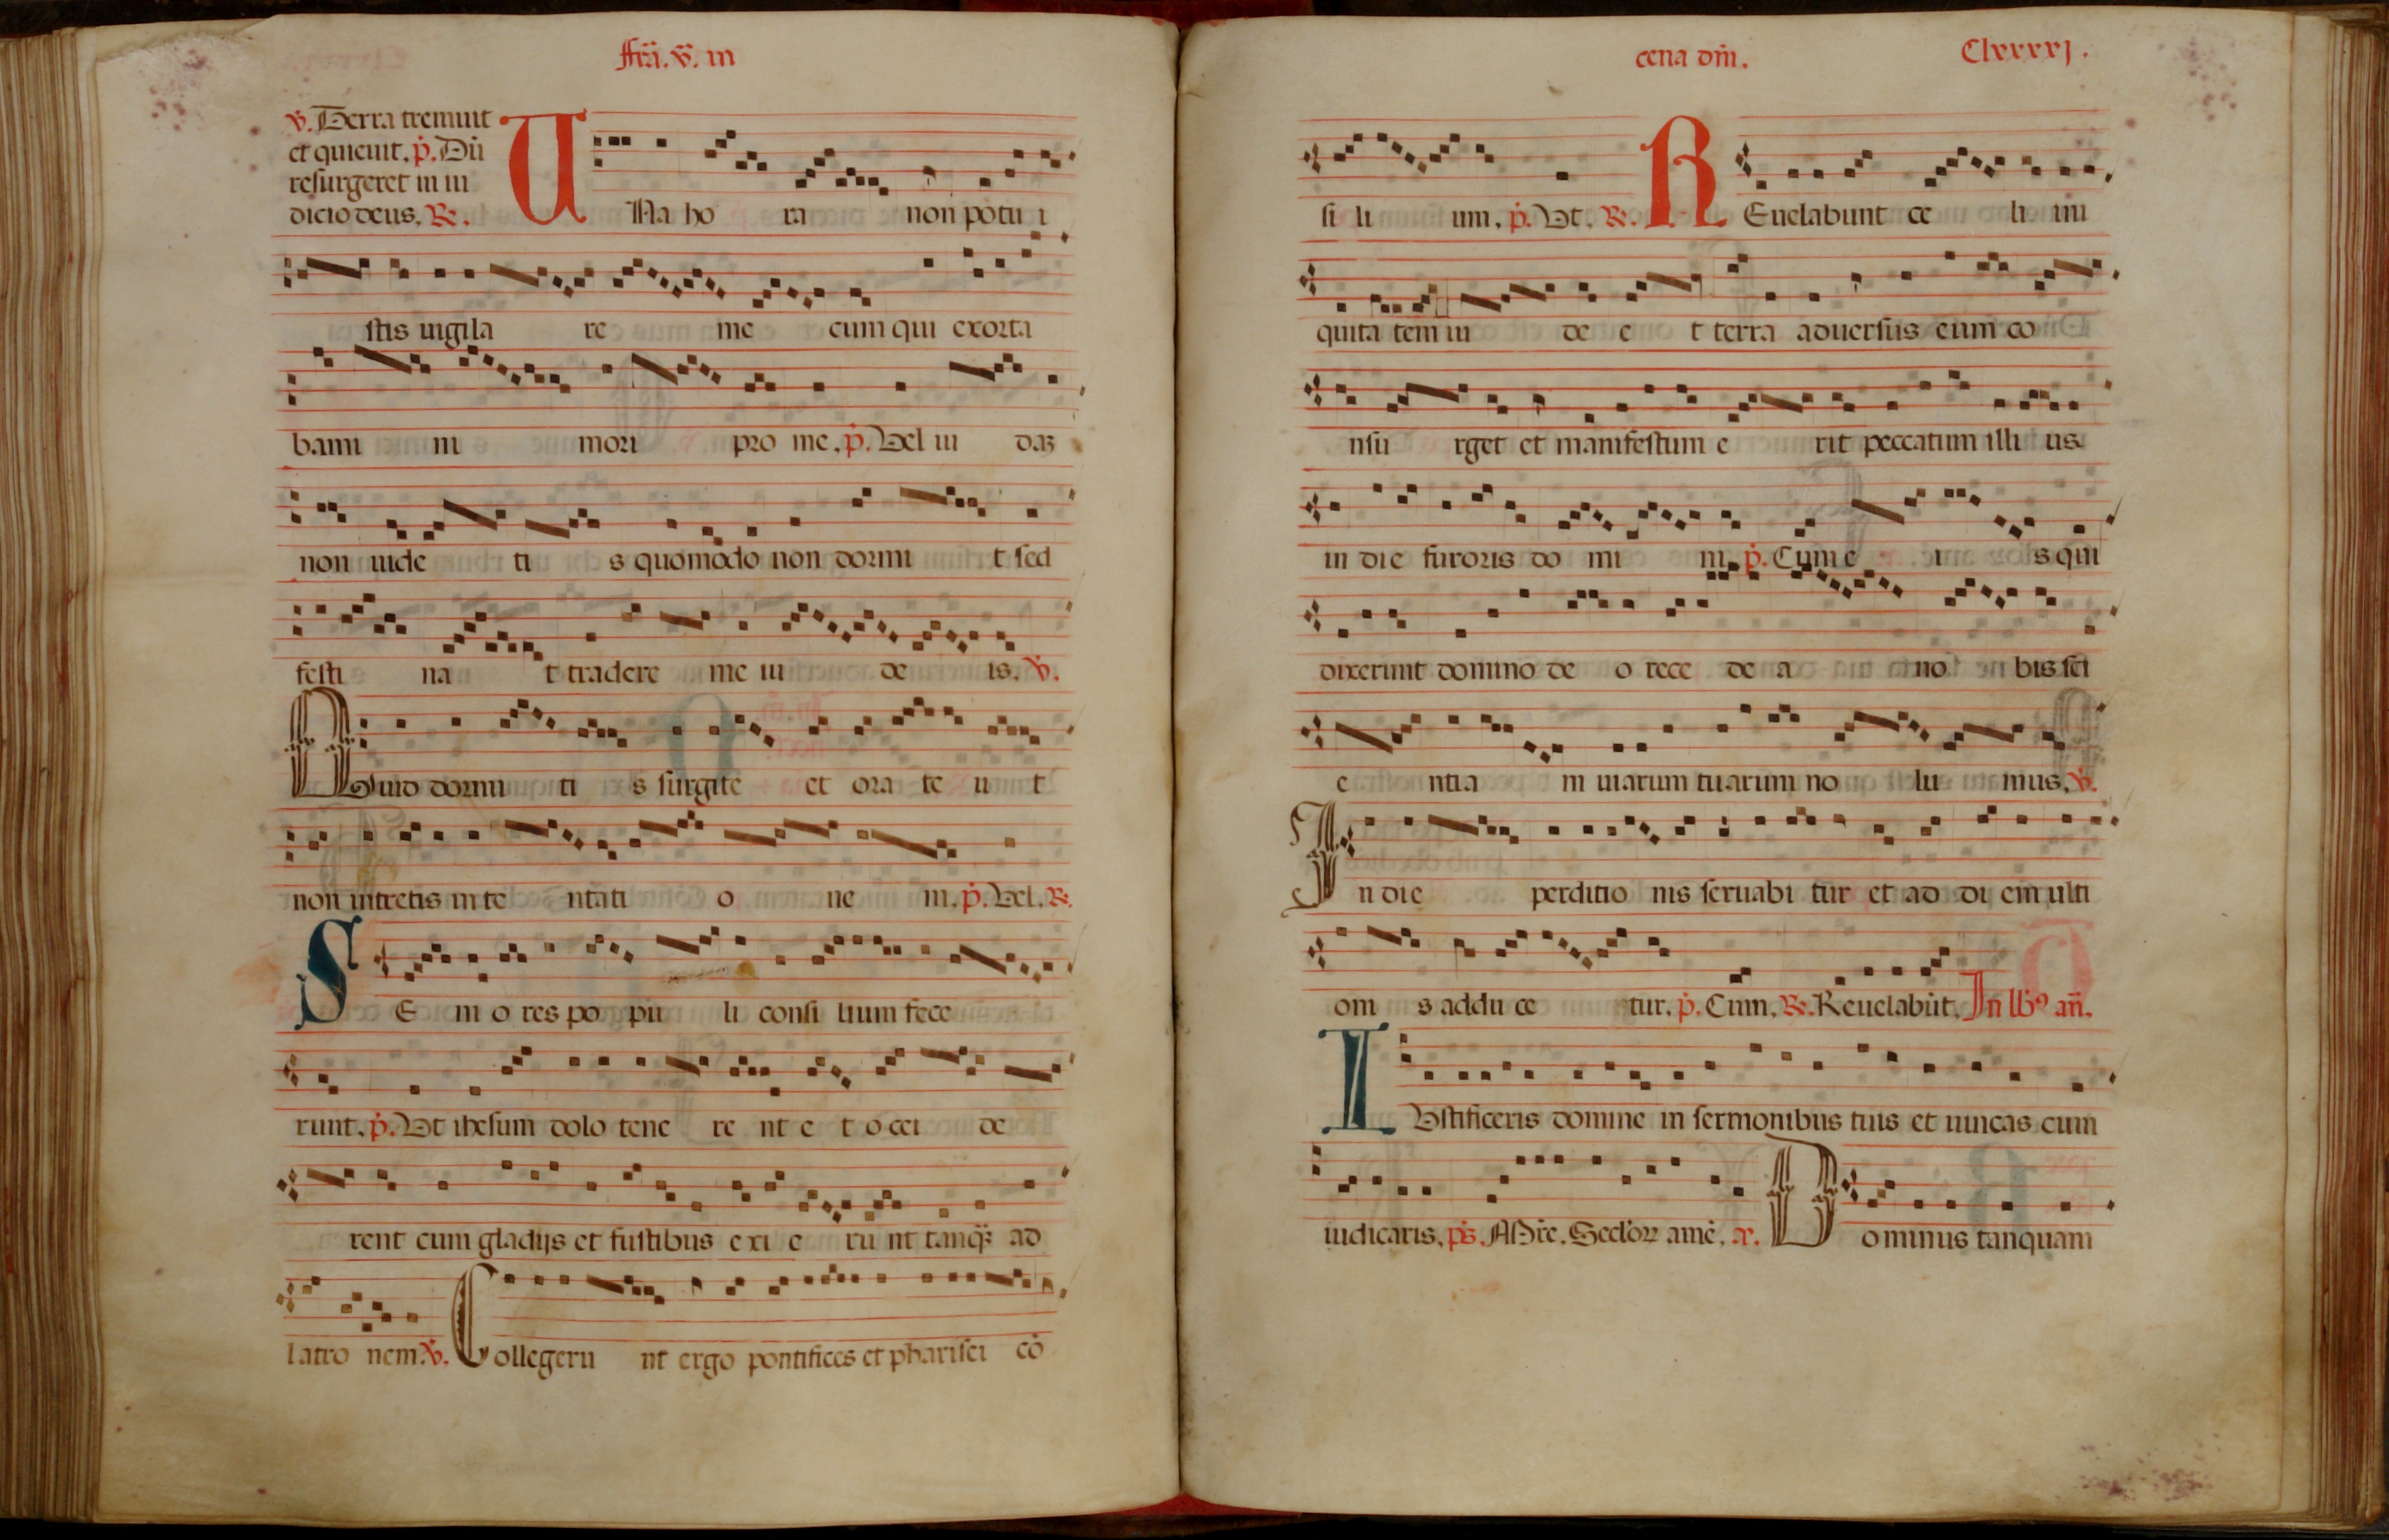 ffrĩa. v̇. in
v̇. Terra tremuit
et quieuit. ṗ. Dũ
resurgeret in iu
dicio deus. ℞.
UNa ho ra non potu i
stis uigila re me cum qui exorta
bami ni mori pro me. ṗ. Vel iu daꝫ
non uide ti s quomodo non dormi t sed
festi na t tradere me iu de is. v̇.
Quid dormi ti s surgite et ora te u t
non intretis in te ntati o ne m. ṗ. Vel. ℞.
SE ni o res po pu li consi lium fece
runt. ṗ. Vt ihesum dolo tene re nt e t o cci de
rent cum gladijs et fustibus e xi e ru nt tanq̃ʒ ad
latro nem. v̇. Collegeru nt ergo pontifices et pharisei cõ
cena dñi. Clxxxxj.
si li um. ṗ. Vt. ℞. REuelabunt ce li ini
quita tem iu de e t terra aduersus eum co
nsu rget et manifestum e rit peccatum illi us
in die furoris do mi ni ṗ. Cum e i s qui
dixerunt domino de o rece de a no bis sci
e ntia m uiarum tuarum no lu mus. v̇.
In die perditio nis seruabi tur et ad di em ulti
oni s addu ce tur. ṗ. Cum. ℞. Reuelabũt. In ll̃bꝰ añ.
IVstificeris domine in sermonibus tuis et uincas cum
iudicaris. p̃s. Mĩre. Sec̃loꝝ amẽ. a. Dominus tanquam